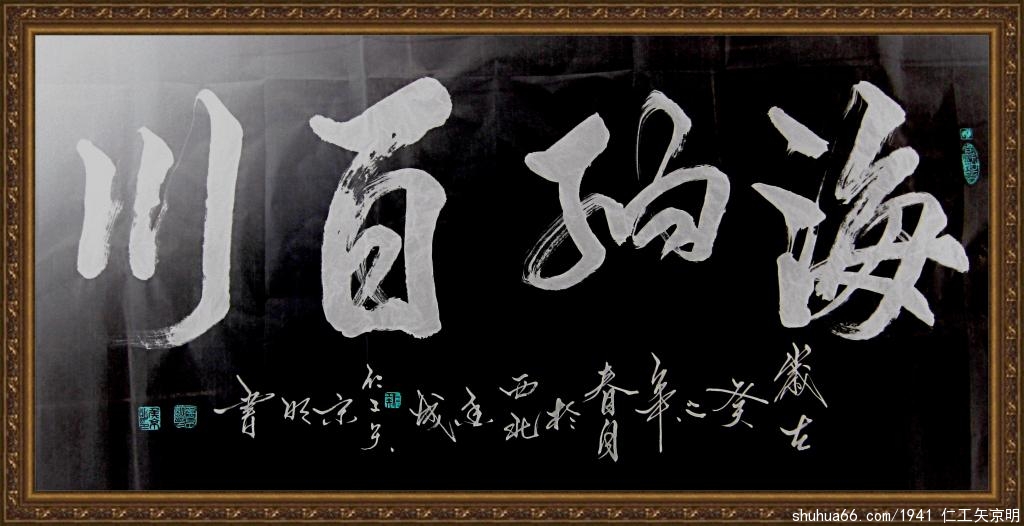 海纳百川
歲在癸之年春月於西北魚城仁工矢京明書
shuhua66.com/1941 仁工矢京明